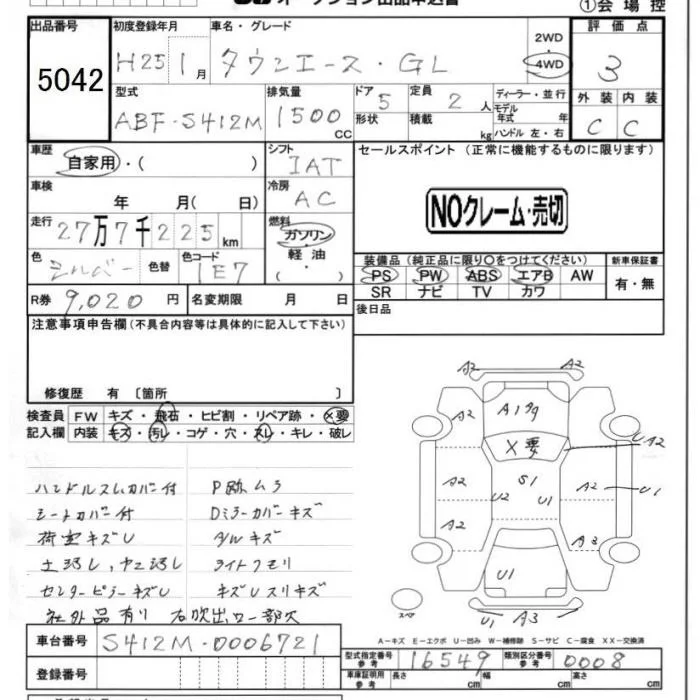 オークション出品申込書
①会場控
出品番号
5042
初度登録年月
H25 1月
車名・グレード
タウンエース・GL
2WD
4WD
評価点
3
型式
ABF-S412M
排気量
1500 CC
ドア
5
形状
定員
2人
積載
kg
ディーラー・並行
モデル年式 年
ハンドル 左・右
外装 内装
C C
車歴
自家用・( )
シフト
IAT
セールスポイント (正常に機能するものに限ります)
NOクレーム・売切
車検
年 月( 日)
冷房
AC
走行
27万7千225km
燃料
ガソリン
・
軽油
・
( )
色
シルバー
色替
色コード
1E7
装備品(純正品に限り○をつけてください)
PS PW ABS エアB AW
SR ナビ TV カワ
新車保証書
有・無
R券 9,020円
名変期限 月 日
後日品
注意事項申告欄(不具合内容等は具体的に記入して下さい)
修復歴 有 〔箇所 〕
検査員記入欄
FW キズ・飛石・ヒビ割・リペア跡・X要
内装 キズ・汚レ・コゲ・穴・スレ・キレ・破レ
ハンドルスレカバー付 P跡ムラ
シートカバー付 Dミラーカバーキズ
荷室キズU ダルキズ
土汚レ,ヤニ汚レ ライトクモリ
センターピラーキズU キズUスリキズ
社外品有り 右吹出口一部欠
A2 A2
A2 A1 飛 A2
X要 UA2
A2 S1 A2 U1
U2 U1
A2 A3
U1
スペア
U1 A3
A-キズ E-エクボ U-凹み W-補修跡 S-サビ C-腐食 XX-交換済
車台番号
S412M-0006721
登録番号
型式指定番号 参考
16549
類別区分番号 参考
0008
車庫証明用 参考
長さ cm 幅 cm 高さ cm